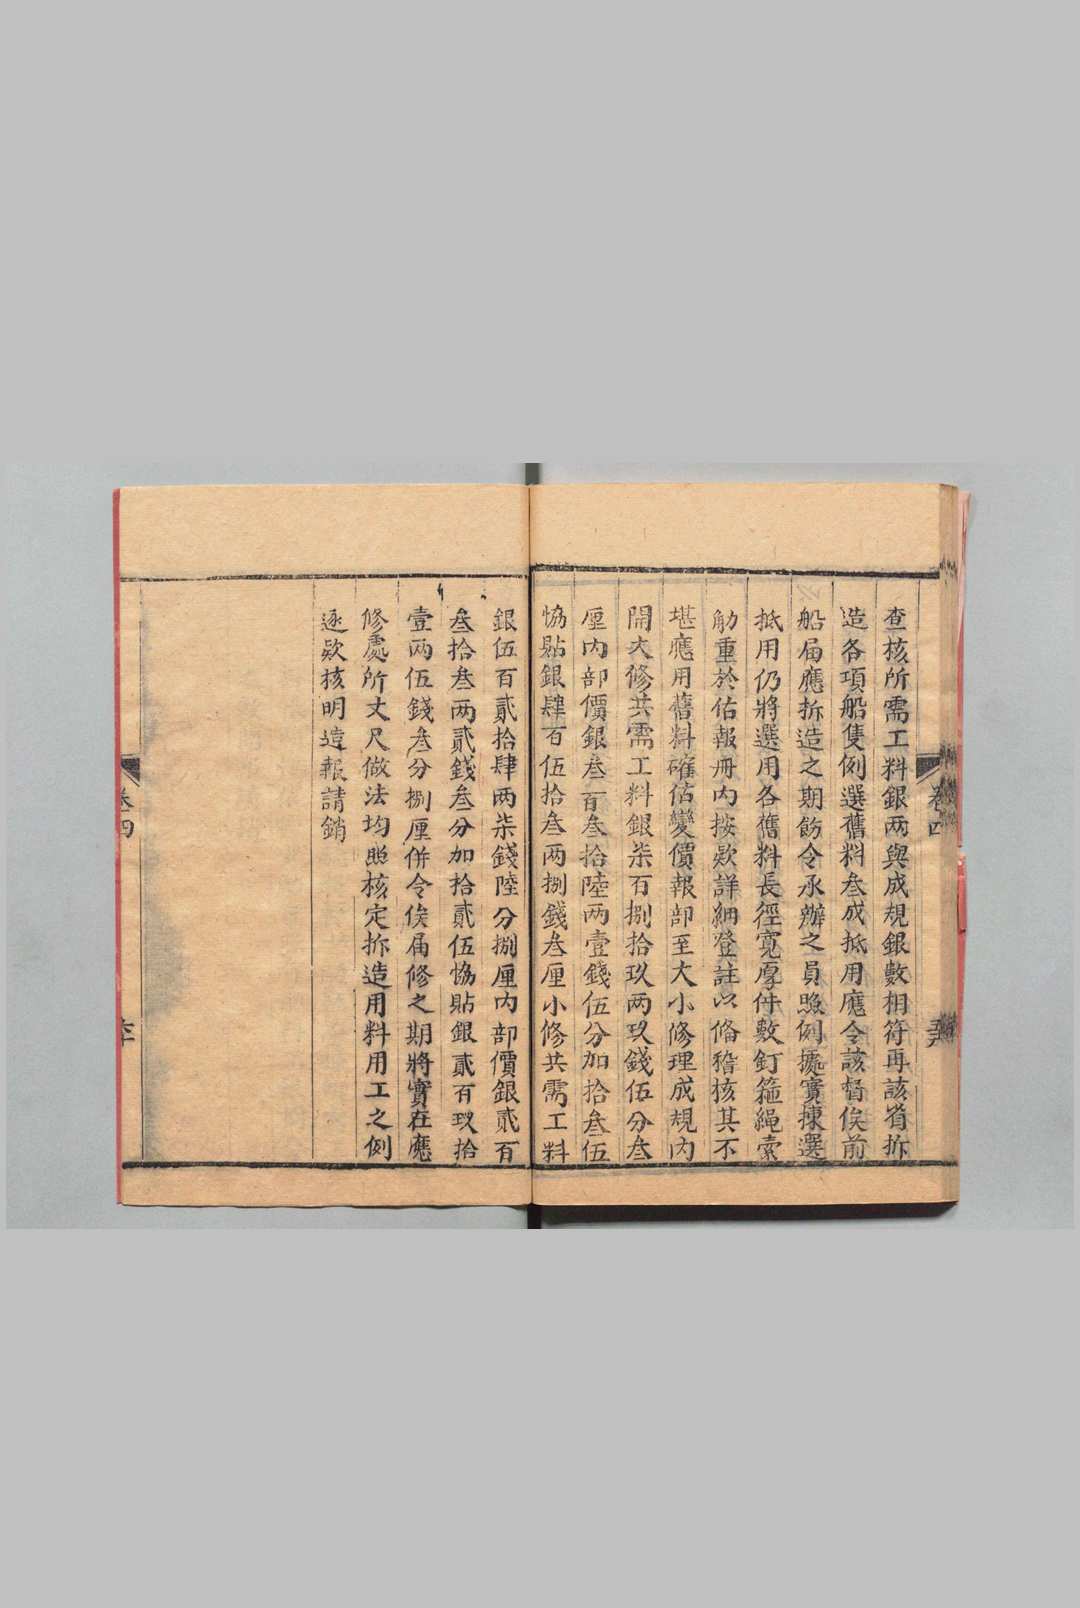 查核所需工料銀两與成規銀數相符再該省拆
造各項船隻例選舊料叁成抵用應令該督俟前
船屆應拆造之期飭令承辦之員照例擄實揀選
抵用仍將選用各舊料長徑寬厚件數釘箍繩索
觔重於估報冊内按欵詳細登註以偹稽核其不
堪應用舊料確估變價報部至大小修理成規内
開大修共需工料銀柒百捌拾玖两玖錢伍分叁
厘内部價銀叁百叁拾陸两壹錢伍分加拾叁伍
恊貼銀肆百伍拾叁两捌錢叁厘小修共需工料
銀伍百貳拾肆两柒錢陸分捌厘内部價銀貳百
叁拾叁两貳錢叁分加拾貳伍恊貼銀貳百玖拾
壹两伍錢叁分捌厘併令俟屆修之期將實在應
修處所丈尺做法均照核定拆造用料用工之例
逐欵核明造報請銷
卷四
卷四